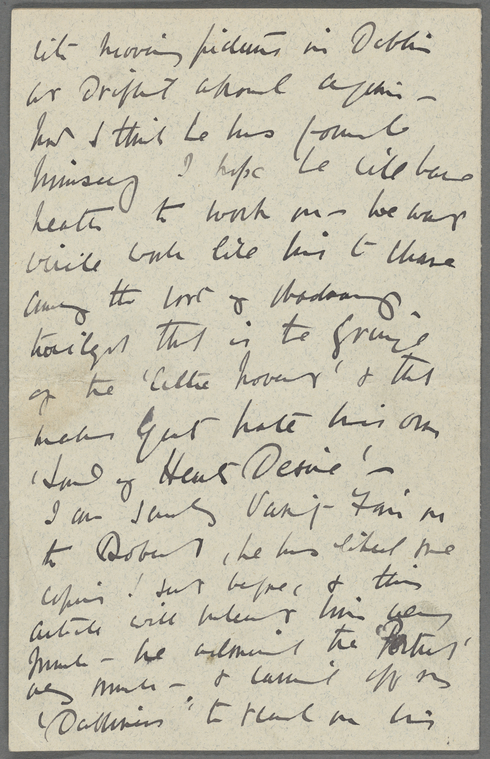 with moving pictures in Dublin
or Drifted about again –
but I think he has found
himself I hope he will have
health to work on – we want
virile work like his to chase
away the sort of shadowy
twilight that is the fringe
of the 'Celtic movement' & that
makes Yeats hate his own
'Land of Hearts Desire' –
I am sending Vanity Fair on
to Robert, he has liked the
copies I sent before, & this
article will interest him very
much – he admired the 'Portrait'
very much – & carried off my
'Dubliners' to read on his